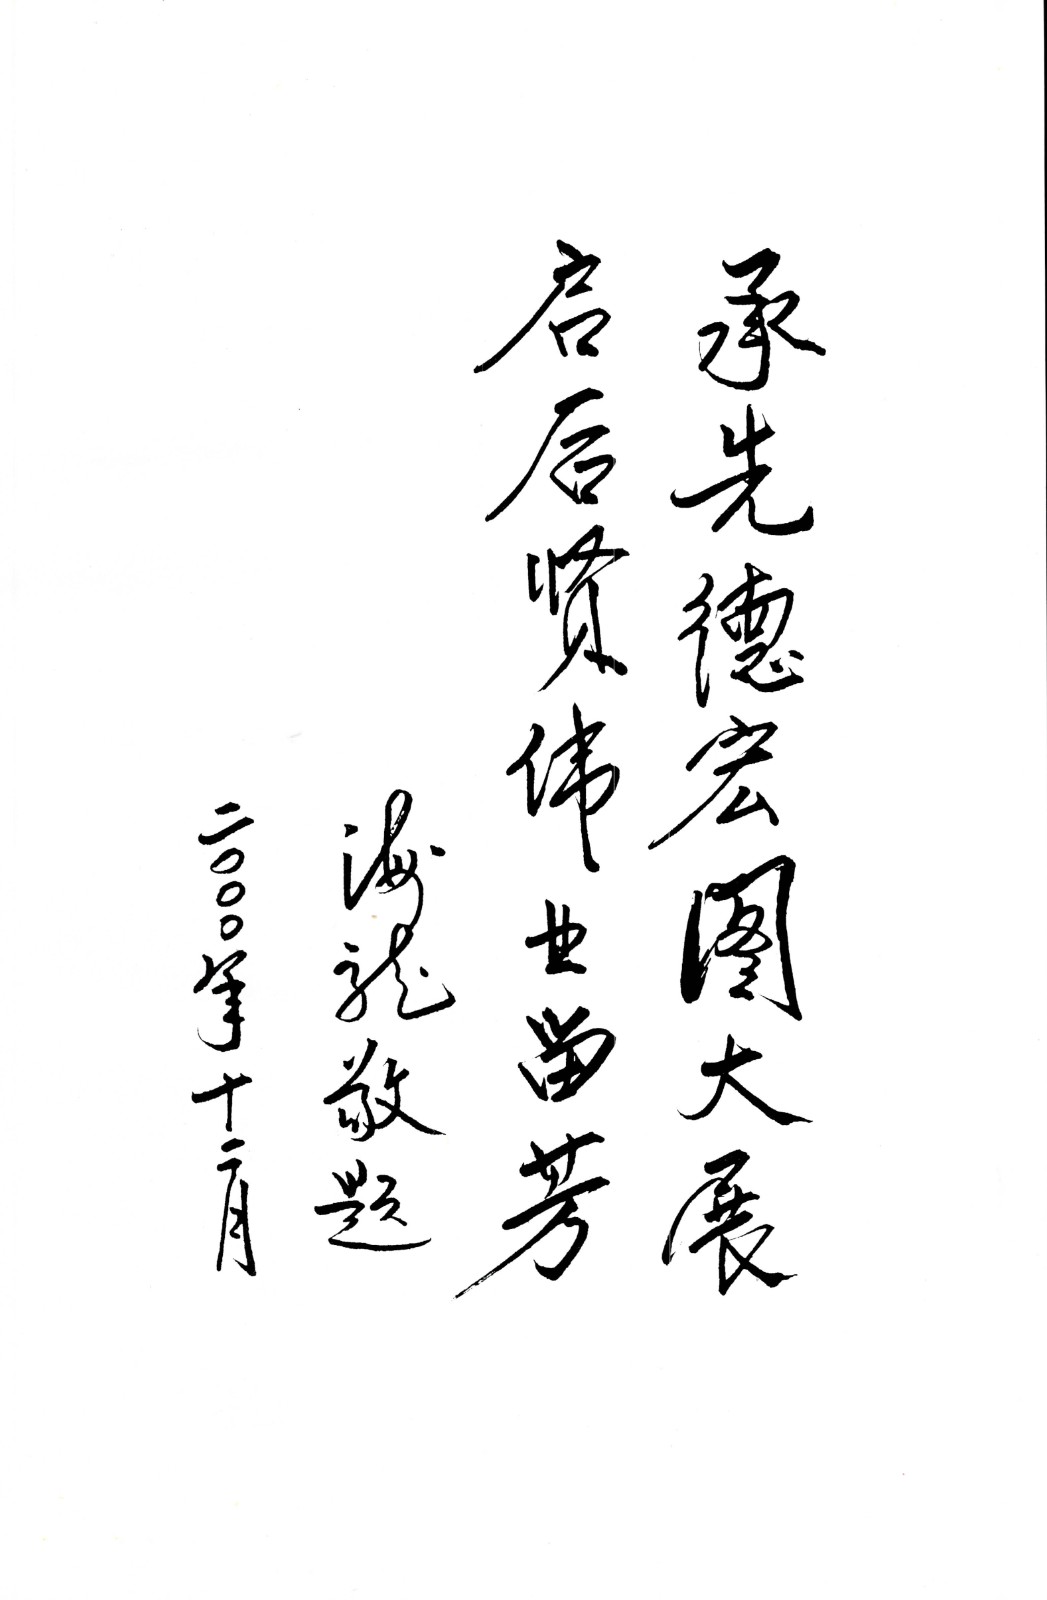 承先德宏图大展
启后贤伟业留芳
海龙敬题
二〇〇〇年十二月